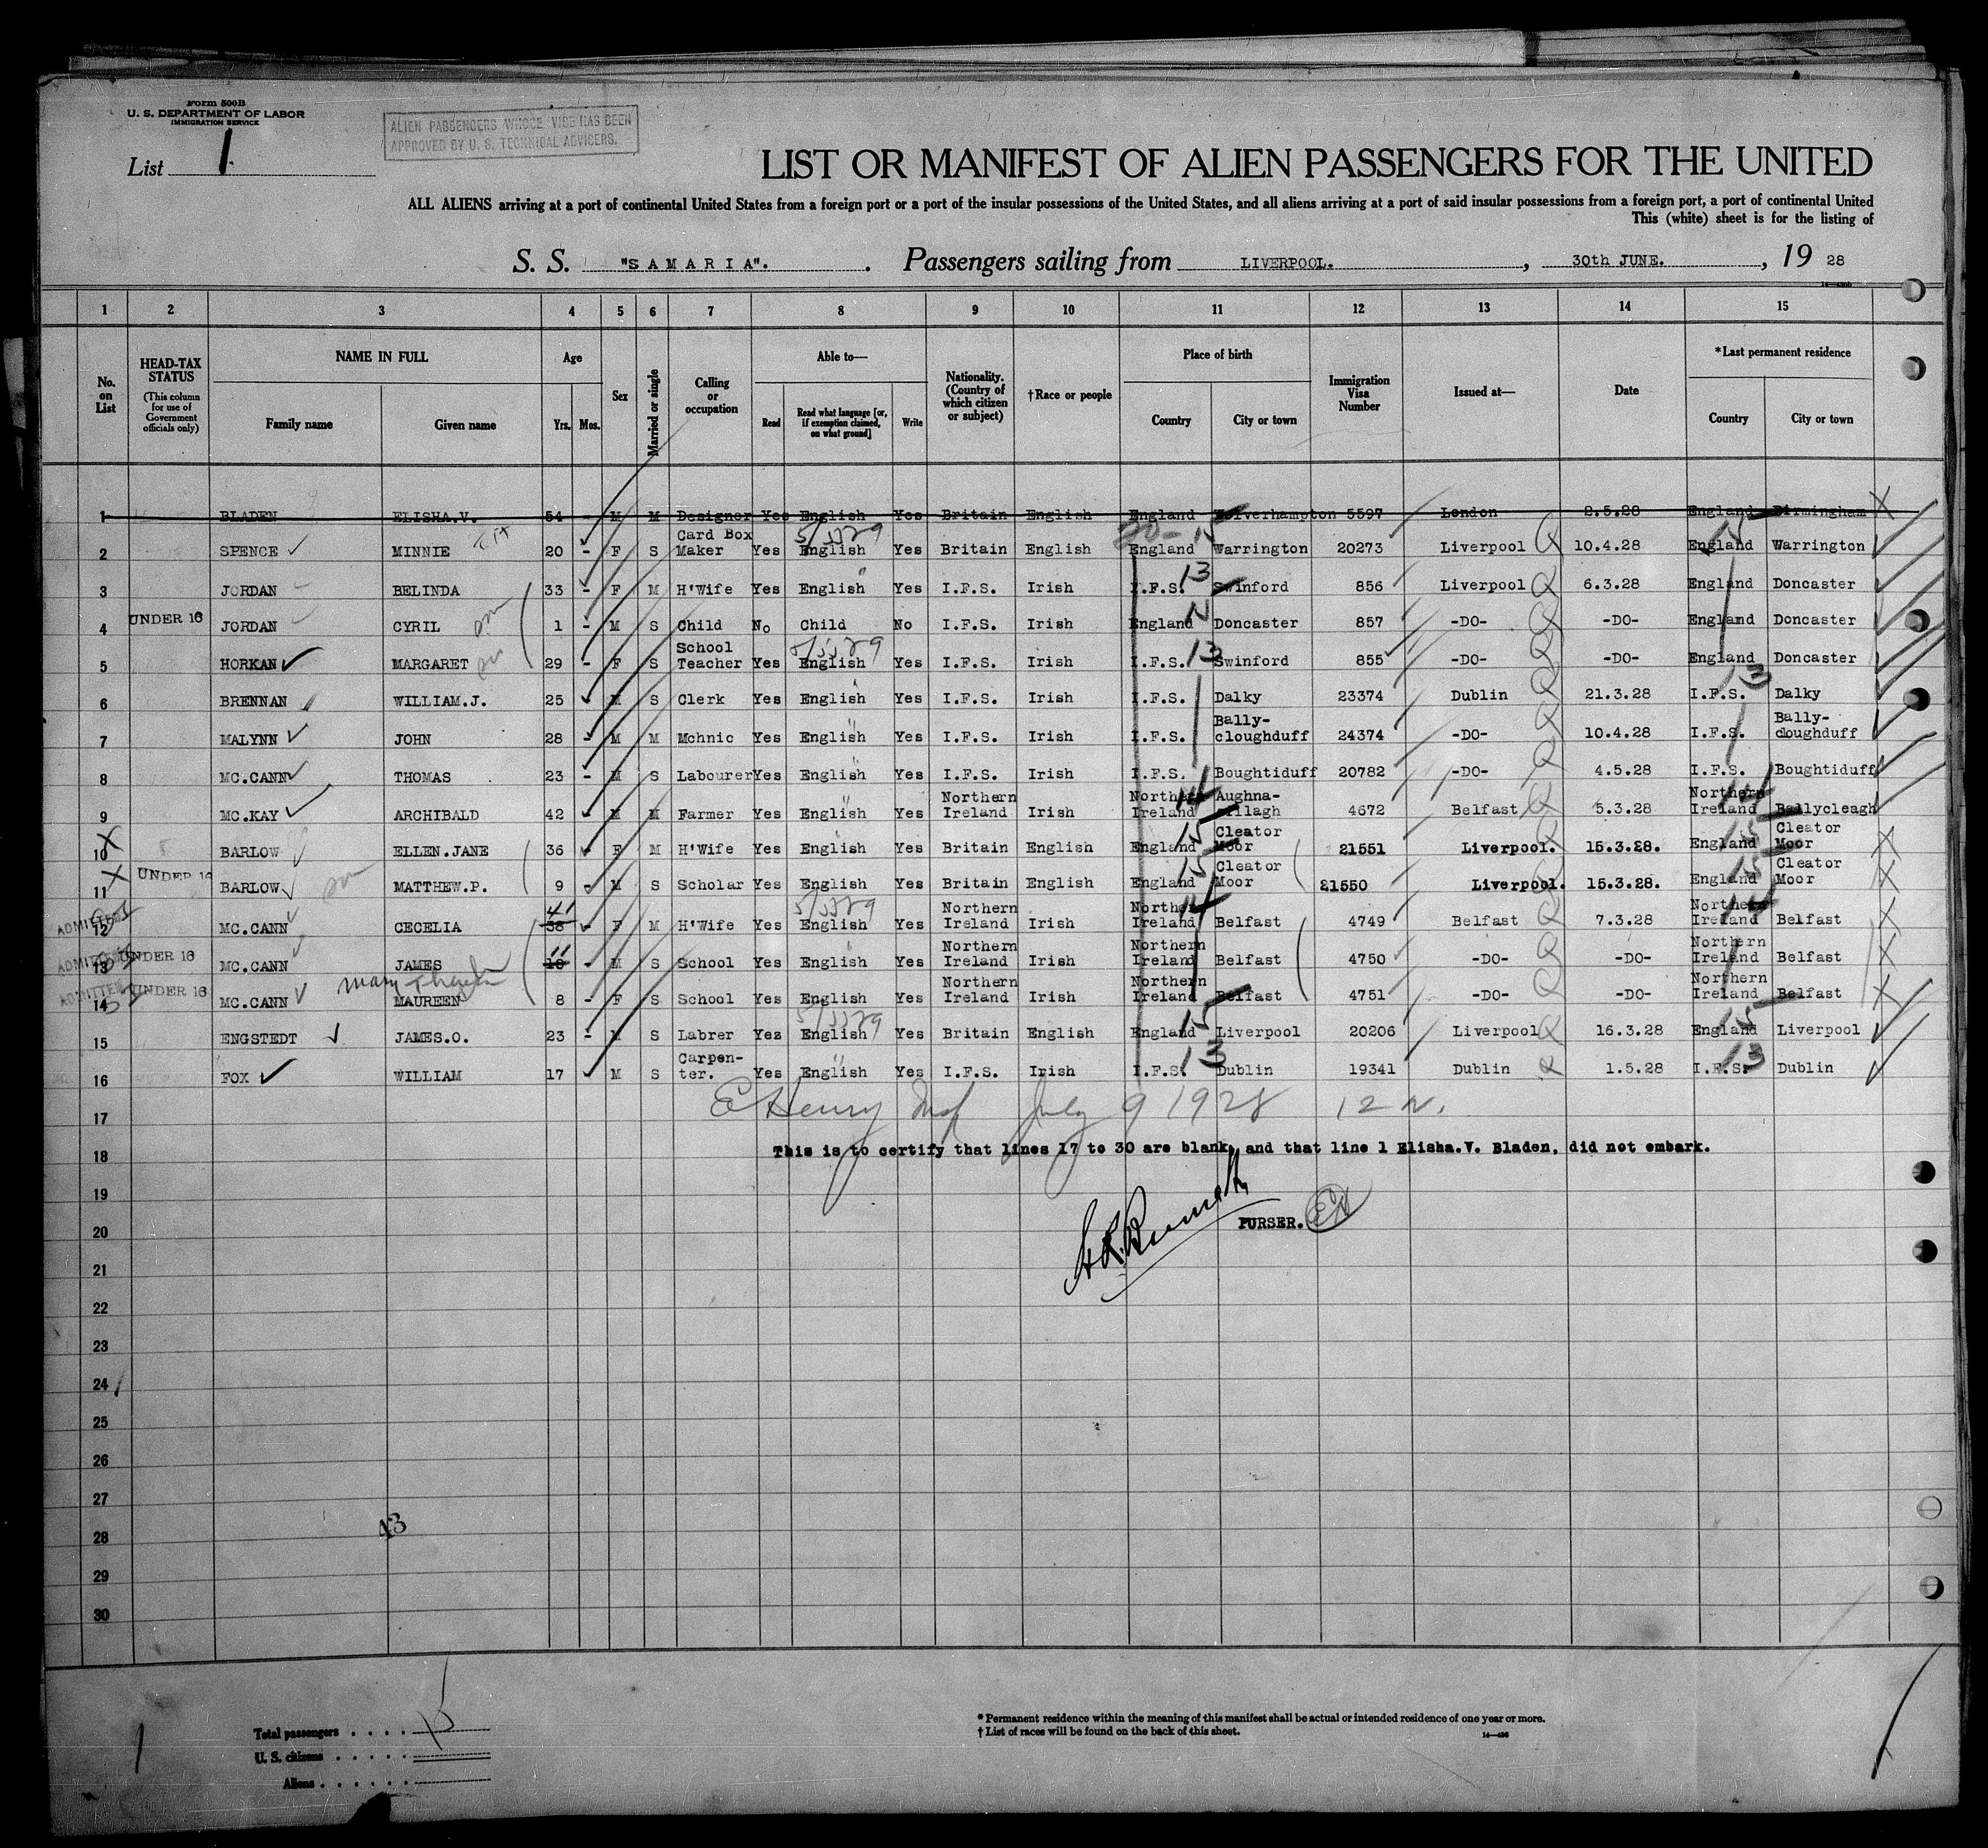 Form 500B
U. S. DEPARTMENT OF LABOR
IMMIGRATION SERVICE
ALIEN PASSENGERS WHOSE VISE HAS BEEN
APPROVED BY U. S. TECHNICAL ADVISERS.
List 1.
LIST OR MANIFEST OF ALIEN PASSENGERS FOR THE UNITED
ALL ALIENS arriving at a port of continental United States from a foreign port or a port of the insular possessions of the United States, and all aliens arriving at a port of said insular possessions from a foreign port, a port of continental United
This (white) sheet is for the listing of
S. S. "SAMARIA". Passengers sailing from LIVERPOOL. , 30th JUNE. , 19 28
1 2 3 4 5 6 7 8 9 10 11 12 13 14 15
No. on List
HEAD-TAX STATUS
(This column for use of Government officials only)
NAME IN FULL
Family name Given name
Age
Yrs. Mos.
Sex
Married or single
Calling or occupation
Able to—
Read Read what language [or, if exemption claimed, on what ground] Write
Nationality. (Country of which citizen or subject)
†Race or people
Place of birth
Country City or town
Immigration Visa Number
Issued at—
Date
*Last permanent residence
Country City or town
1 BLADEN ELISHA.V. 54 - M M Designer Yes English Yes Britain English England Wolverhampton 5597 London 2.5.28 England Birmingham
2 SPENCE MINNIE 20 - F S Card Box Maker Yes English Yes Britain English England Warrington 20273 Liverpool 10.4.28 England Warrington
3 JORDAN BELINDA 33 - F M H'Wife Yes English Yes I.F.S. Irish I.F.S. 13 Swinford 856 Liverpool 6.3.28 England Doncaster
4 UNDER 16 JORDAN CYRIL 1 - M S Child No Child No I.F.S. Irish England Doncaster 857 -DO- -DO- England Doncaster
5 HORKAN MARGARET 29 - F S School Teacher Yes English Yes I.F.S. Irish I.F.S. 13 Swinford 855 -DO- -DO- England Doncaster
6 BRENNAN WILLIAM.J. 25 - M S Clerk Yes English Yes I.F.S. Irish I.F.S. Dalky 23374 Dublin 21.3.28 I.F.S. 13 Dalky
7 MALYNN JOHN 28 - M M Mchnic Yes English Yes I.F.S. Irish I.F.S. Bally-cloughduff 24374 -DO- 10.4.28 I.F.S. Bally-cloughduff
8 MC.CANN THOMAS 23 - M S Labourer Yes English Yes I.F.S. Irish I.F.S. Boughtiduff 20782 -DO- 4.5.28 I.F.S. Boughtiduff
9 MC.KAY ARCHIBALD 42 - M M Farmer Yes English Yes Northern Ireland Irish Northern Ireland 14 4672 Belfast 5.3.28 Northern Ireland 14 Ballycleagh
10 BARLOW ELLEN.JANE 36 - F M H'Wife Yes English Yes Britain English England 15 Cleator Moor 21551 Liverpool. 15.3.28. England 15 Cleator Moor
11 UNDER 16 BARLOW MATTHEW.P. 9 - M S Scholar Yes English Yes Britain English England 15 Cleator Moor 21550 Liverpool. 15.3.28. England 15 Cleator Moor
ADMITTED 12 MC.CANN CECELIA 38 41 - F M H'Wife Yes English Yes Northern Ireland Irish Northern Ireland 14 Belfast 4749 Belfast 7.3.28 Northern Ireland 14 Belfast
ADMITTED 13 UNDER 16 MC.CANN JAMES 10 11 - M S School Yes English Yes Northern Ireland Irish Northern Ireland Belfast 4750 -DO- -DO- Northern Ireland Belfast
ADMITTED 14 UNDER 16 MC.CANN Mary Theresa MAUREEN 8 - F S School Yes English Yes Northern Ireland Irish Northern Ireland Belfast 4751 -DO- -DO- Northern Ireland Belfast
15 ENGSTEDT JAMES.O. 23 - M S Labrer Yes English Yes Britain English England 15 Liverpool 20206 Liverpool 16.3.28 England 15 Liverpool
16 FOX WILLIAM 17 M S Carpen-ter. Yes English Yes I.F.S. Irish I.F.S. 13 Dublin 19341 Dublin 1.5.28 I.F.S. 13 Dublin
17 E Henry July 9 1928 12 N.
18 This is to certify that lines 17 to 30 are blank, and that line 1 Elisha.V. Bladen, did not embark.
19
20 PURSER. EH
21
22
23
24
25
26
27
28 43
29
30
Total passengers . . . . 15
U. S. citizens . . . . .
Aliens . . . . . .
* Permanent residence within the meaning of this manifest shall be actual or intended residence of one year or more.
† List of races will be found on the back of this sheet.